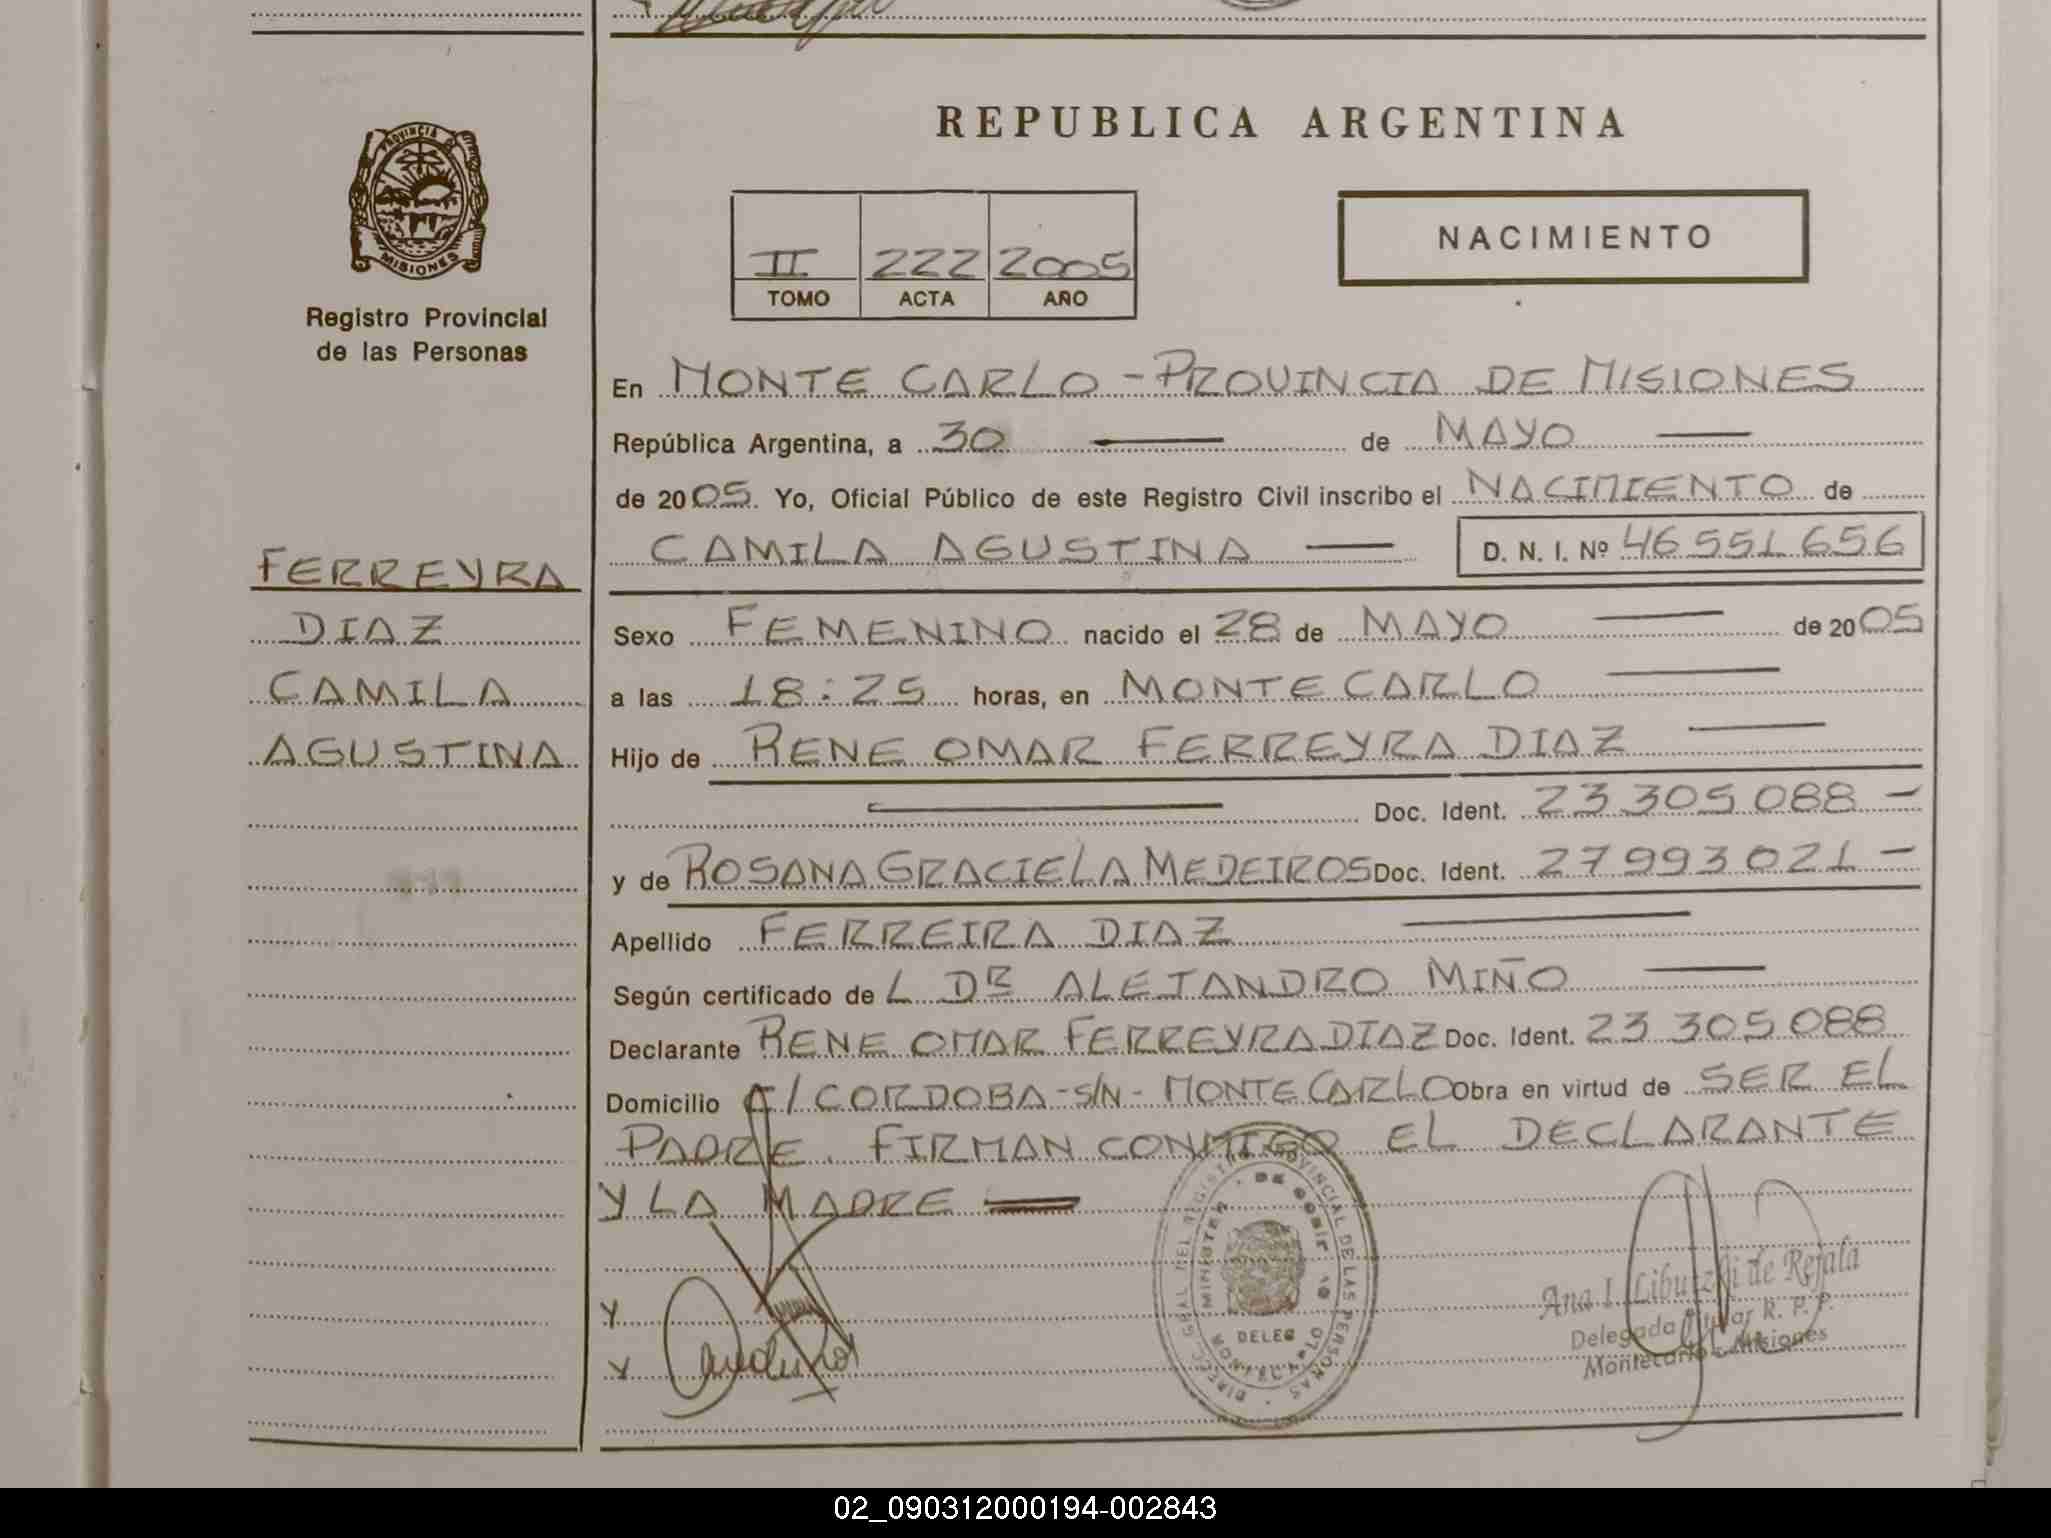 REPUBLICA ARGENTINA
PROVINCIA DE
MISIONES
Registro Provincial
de las Personas
II 222 2005
TOMO ACTA AÑO
NACIMIENTO
En MONTE CARLO - PROVINCIA DE MISIONES
República Argentina, a 30 — de MAYO —
de 2005. Yo, Oficial Público de este Registro Civil inscribo el NACIMIENTO de
CAMILA AGUSTINA — D. N. I. Nº 46 551 656
FERREYRA
DIAZ
CAMILA
AGUSTINA
Sexo FEMENINO nacido el 28 de MAYO — de 2005
a las 18:25 horas, en MONTE CARLO —
Hijo de RENE OMAR FERREYRA DIAZ —
— Doc. Ident. 23 305 088 -
y de ROSANA GRACIELA MEDEIROS Doc. Ident. 27 993 021 -
Apellido FERREIRA DIAZ —
Según certificado de L DR ALEJANDRO MIÑO —
Declarante RENE OMAR FERREYRA DIAZ Doc. Ident. 23 305 088
Domicilio C/ CORDOBA - S/N - MONTE CARLO Obra en virtud de SER EL
PADRE. FIRMAN CONMIGO EL DECLARANTE
Y LA MADRE —
DIREC. GRAL DEL REGISTRO PROVINCIAL DE LAS PERSONAS
DELEG
Ana I. de Rejala
Delegada Titular R. P. P.
Montecarlo - Misiones
02_090312000194-002843